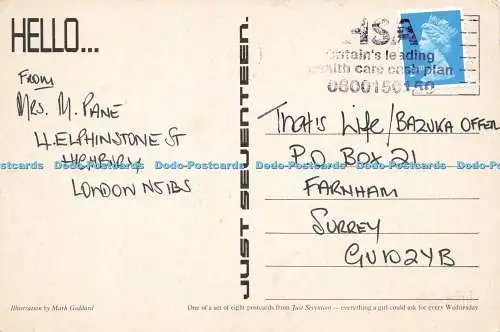 HELLO...
From
MRS. M. PANE
4 ELPHINSTONE ST
HIGHBURY
LONDON N5 1BS
JUST SEVENTEEN.
HSA
Britain's leading
health care cash plan
0800150150
That's Life/BAZUKA OFFER
P.O. BOX 21
FARNHAM
SURREY
GU10 2YB
Dodo-Postcards Dodo-Postcards Dodo-Postcards Dodo-Postcards Dodo-Postcards
Illustration by Mark Goddard
One of a set of eight postcards from Just Seventeen — everything a girl could ask for every Wednesday